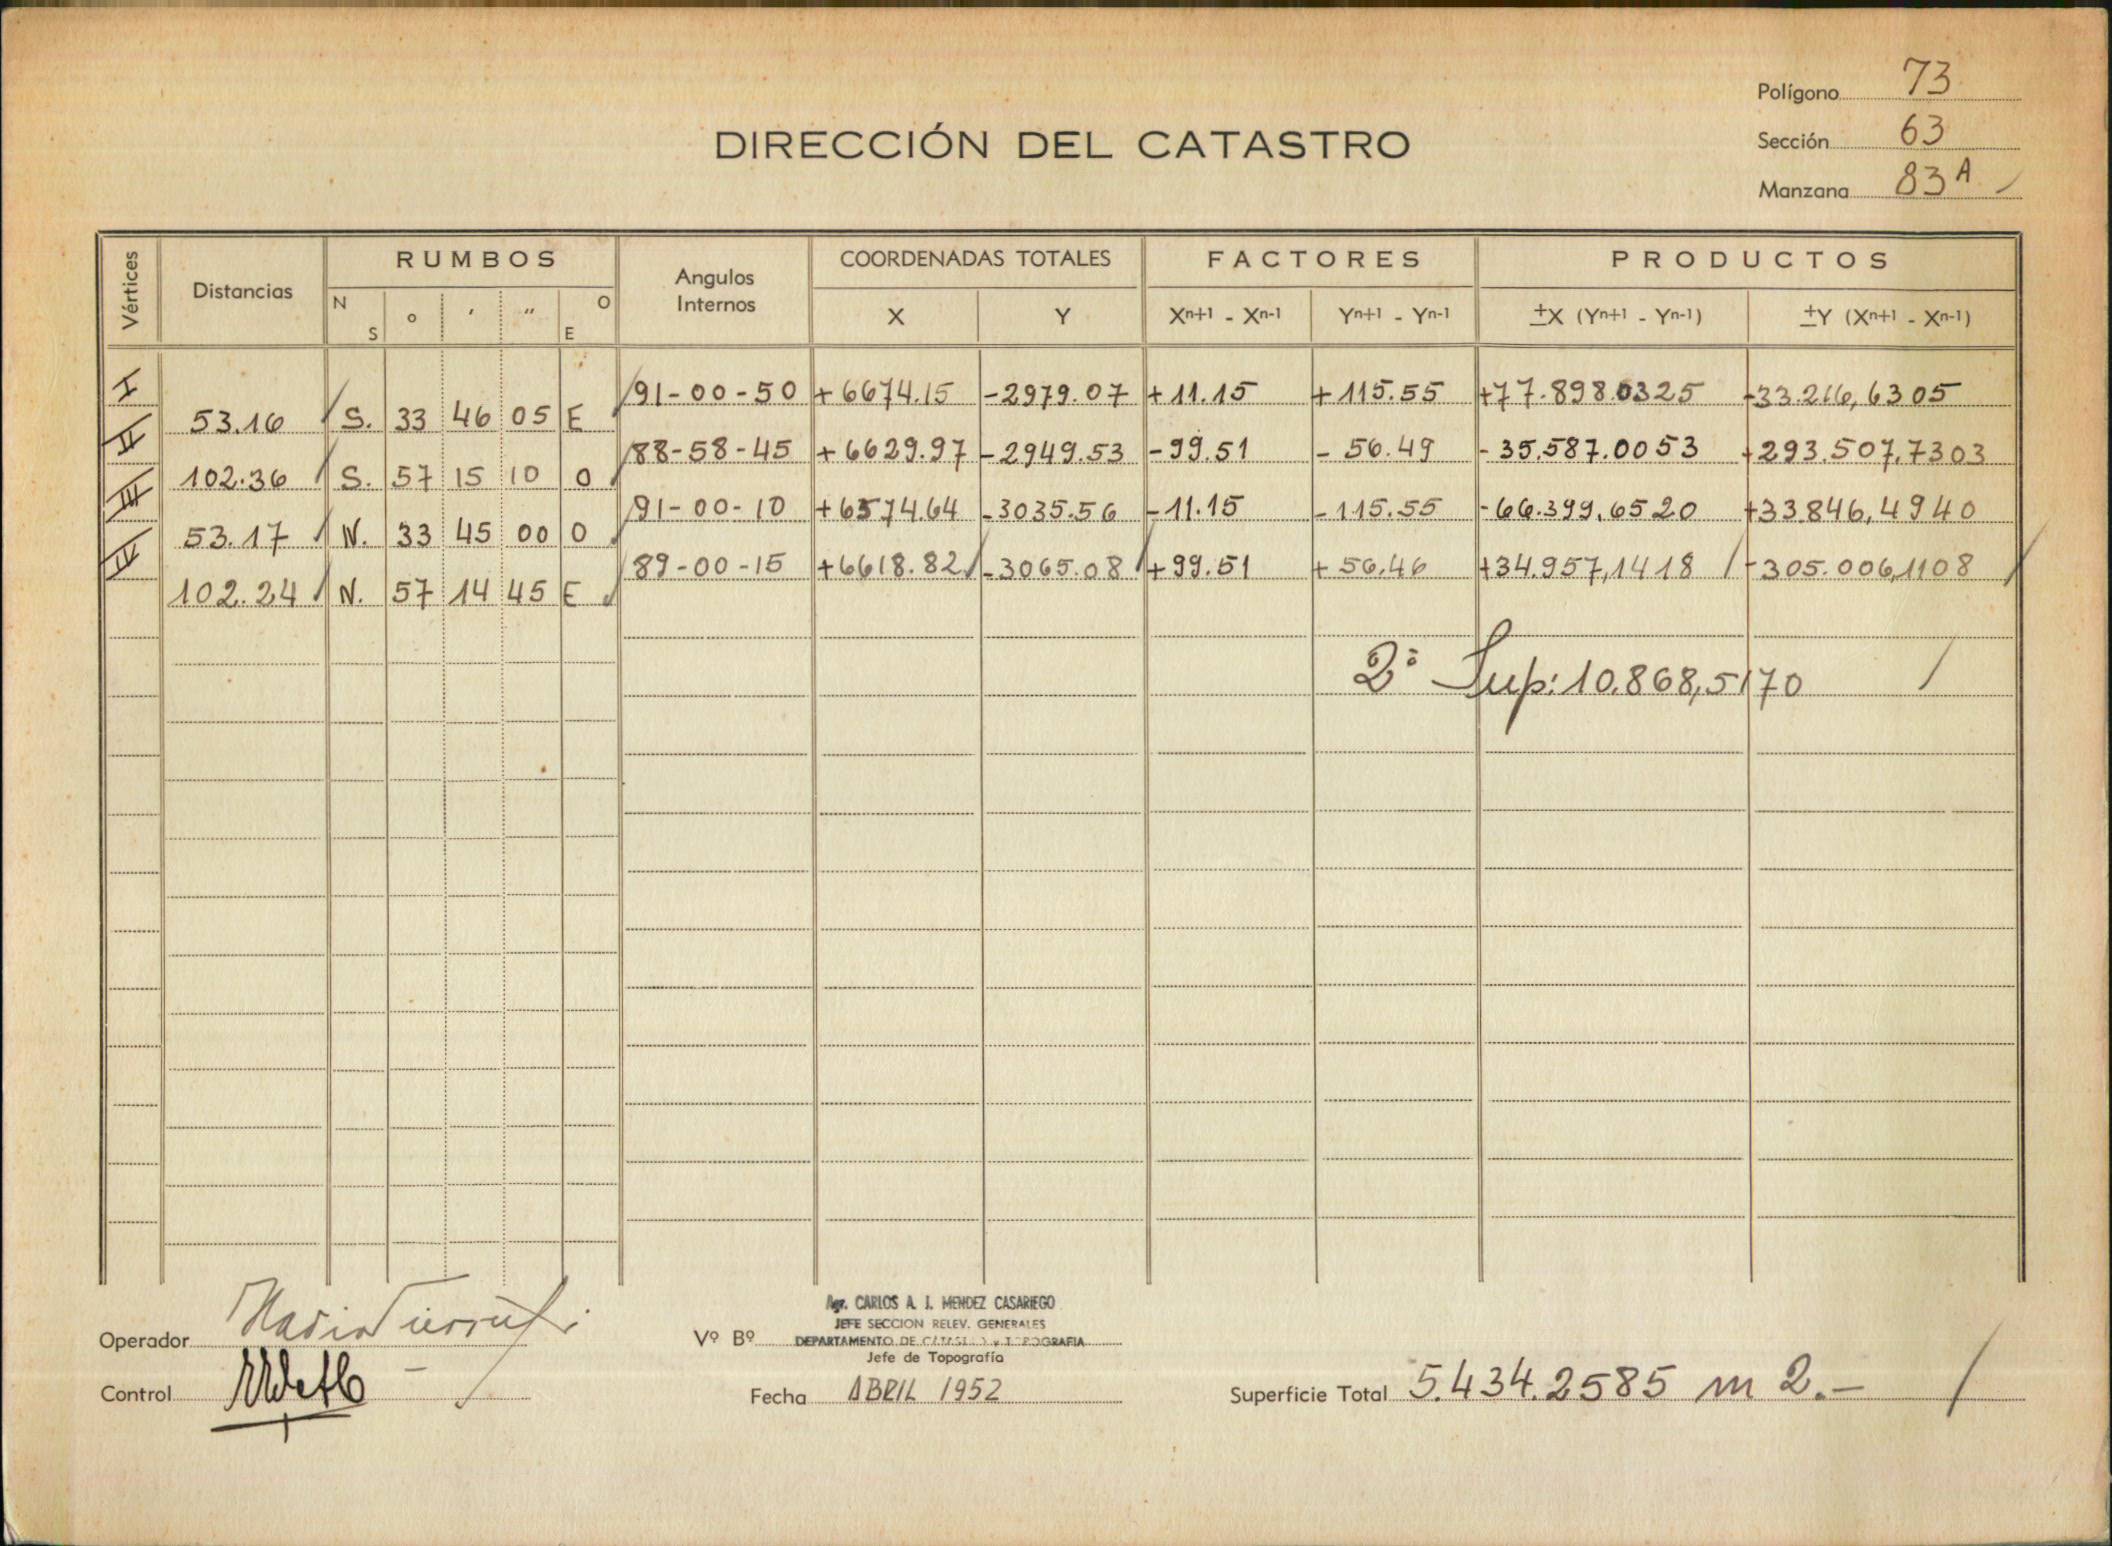 Polígono 73
DIRECCIÓN DEL CATASTRO
Sección 63
Manzana 83 A
Vértices Distancias RUMBOS Angulos Internos COORDENADAS TOTALES FACTORES PRODUCTOS
N S ° ′ ″ O E X Y Xn+1 - Xn-1 Yn+1 - Yn-1 ±X (Yn+1 - Yn-1) ±Y (Xn+1 - Xn-1)
I 91-00-50 +6674.15 -2979.07 +11.15 +115.55 +77.898.0325 -33.216,6305
53.16 S. 33 46 05 E
II 88-58-45 +6629.97 -2949.53 -99.51 -56.49 -35.587.0053 +293.507,7303
102.36 S. 57 15 10 O
III 91-00-10 +6574.64 -3035.56 -11.15 -115.55 -66.399,6520 +33.846,4940
53.17 N. 33 45 00 O
IV 89-00-15 +6618.82 -3065.08 +99.51 +56.46 +34.957,1418 -305.006,1108
102.24 N. 57 14 45 E
2ª Sup: 10.868,5170
Operador
Vº Bº
Agr. CARLOS A. J. MENDEZ CASARIEGO
JEFE SECCION RELEV. GENERALES
DEPARTAMENTO DE CATASTRO y TOPOGRAFIA
Jefe de Topografía
Control
Fecha ABRIL 1952
Superficie Total 5.434.2585 m 2.-